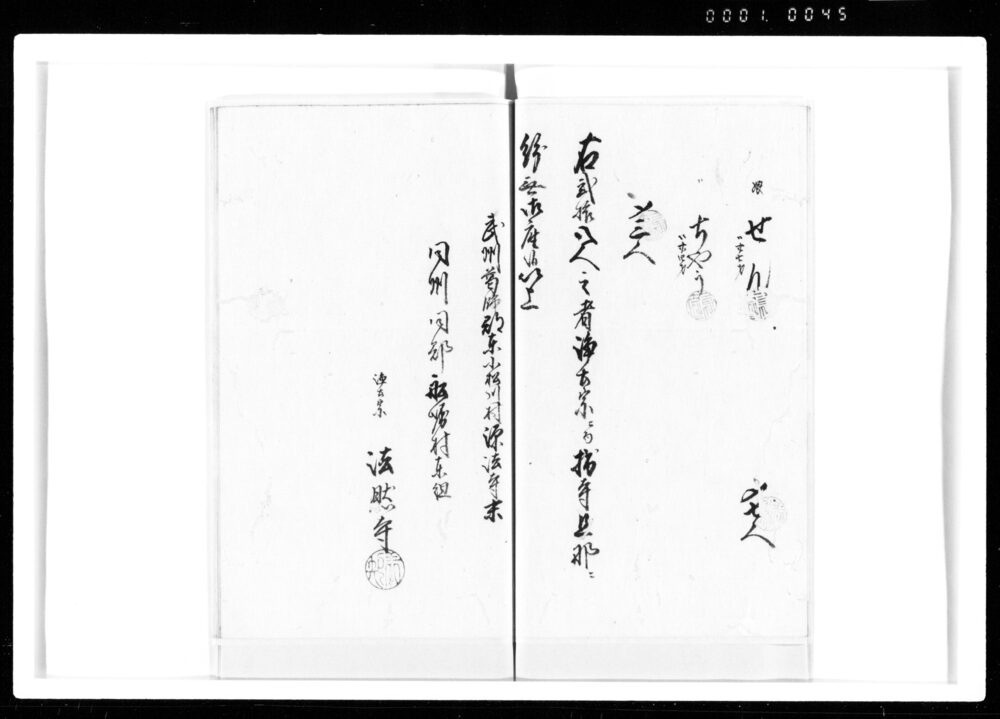 0001. 0045
娘 せん
〆七人
〃 ちやう
〆三人
右弐拾四人之者浄土宗ニ而拙寺旦那ニ
紛無御座候以上
武州葛飾郡東小松川村源法寺末
同州同郡船堀村東組
浄土宗 法然寺